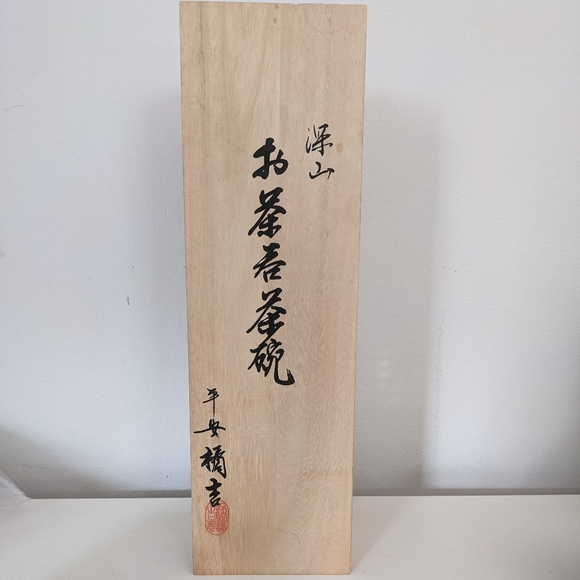 深山
お茶呑茶碗
平安橘吉